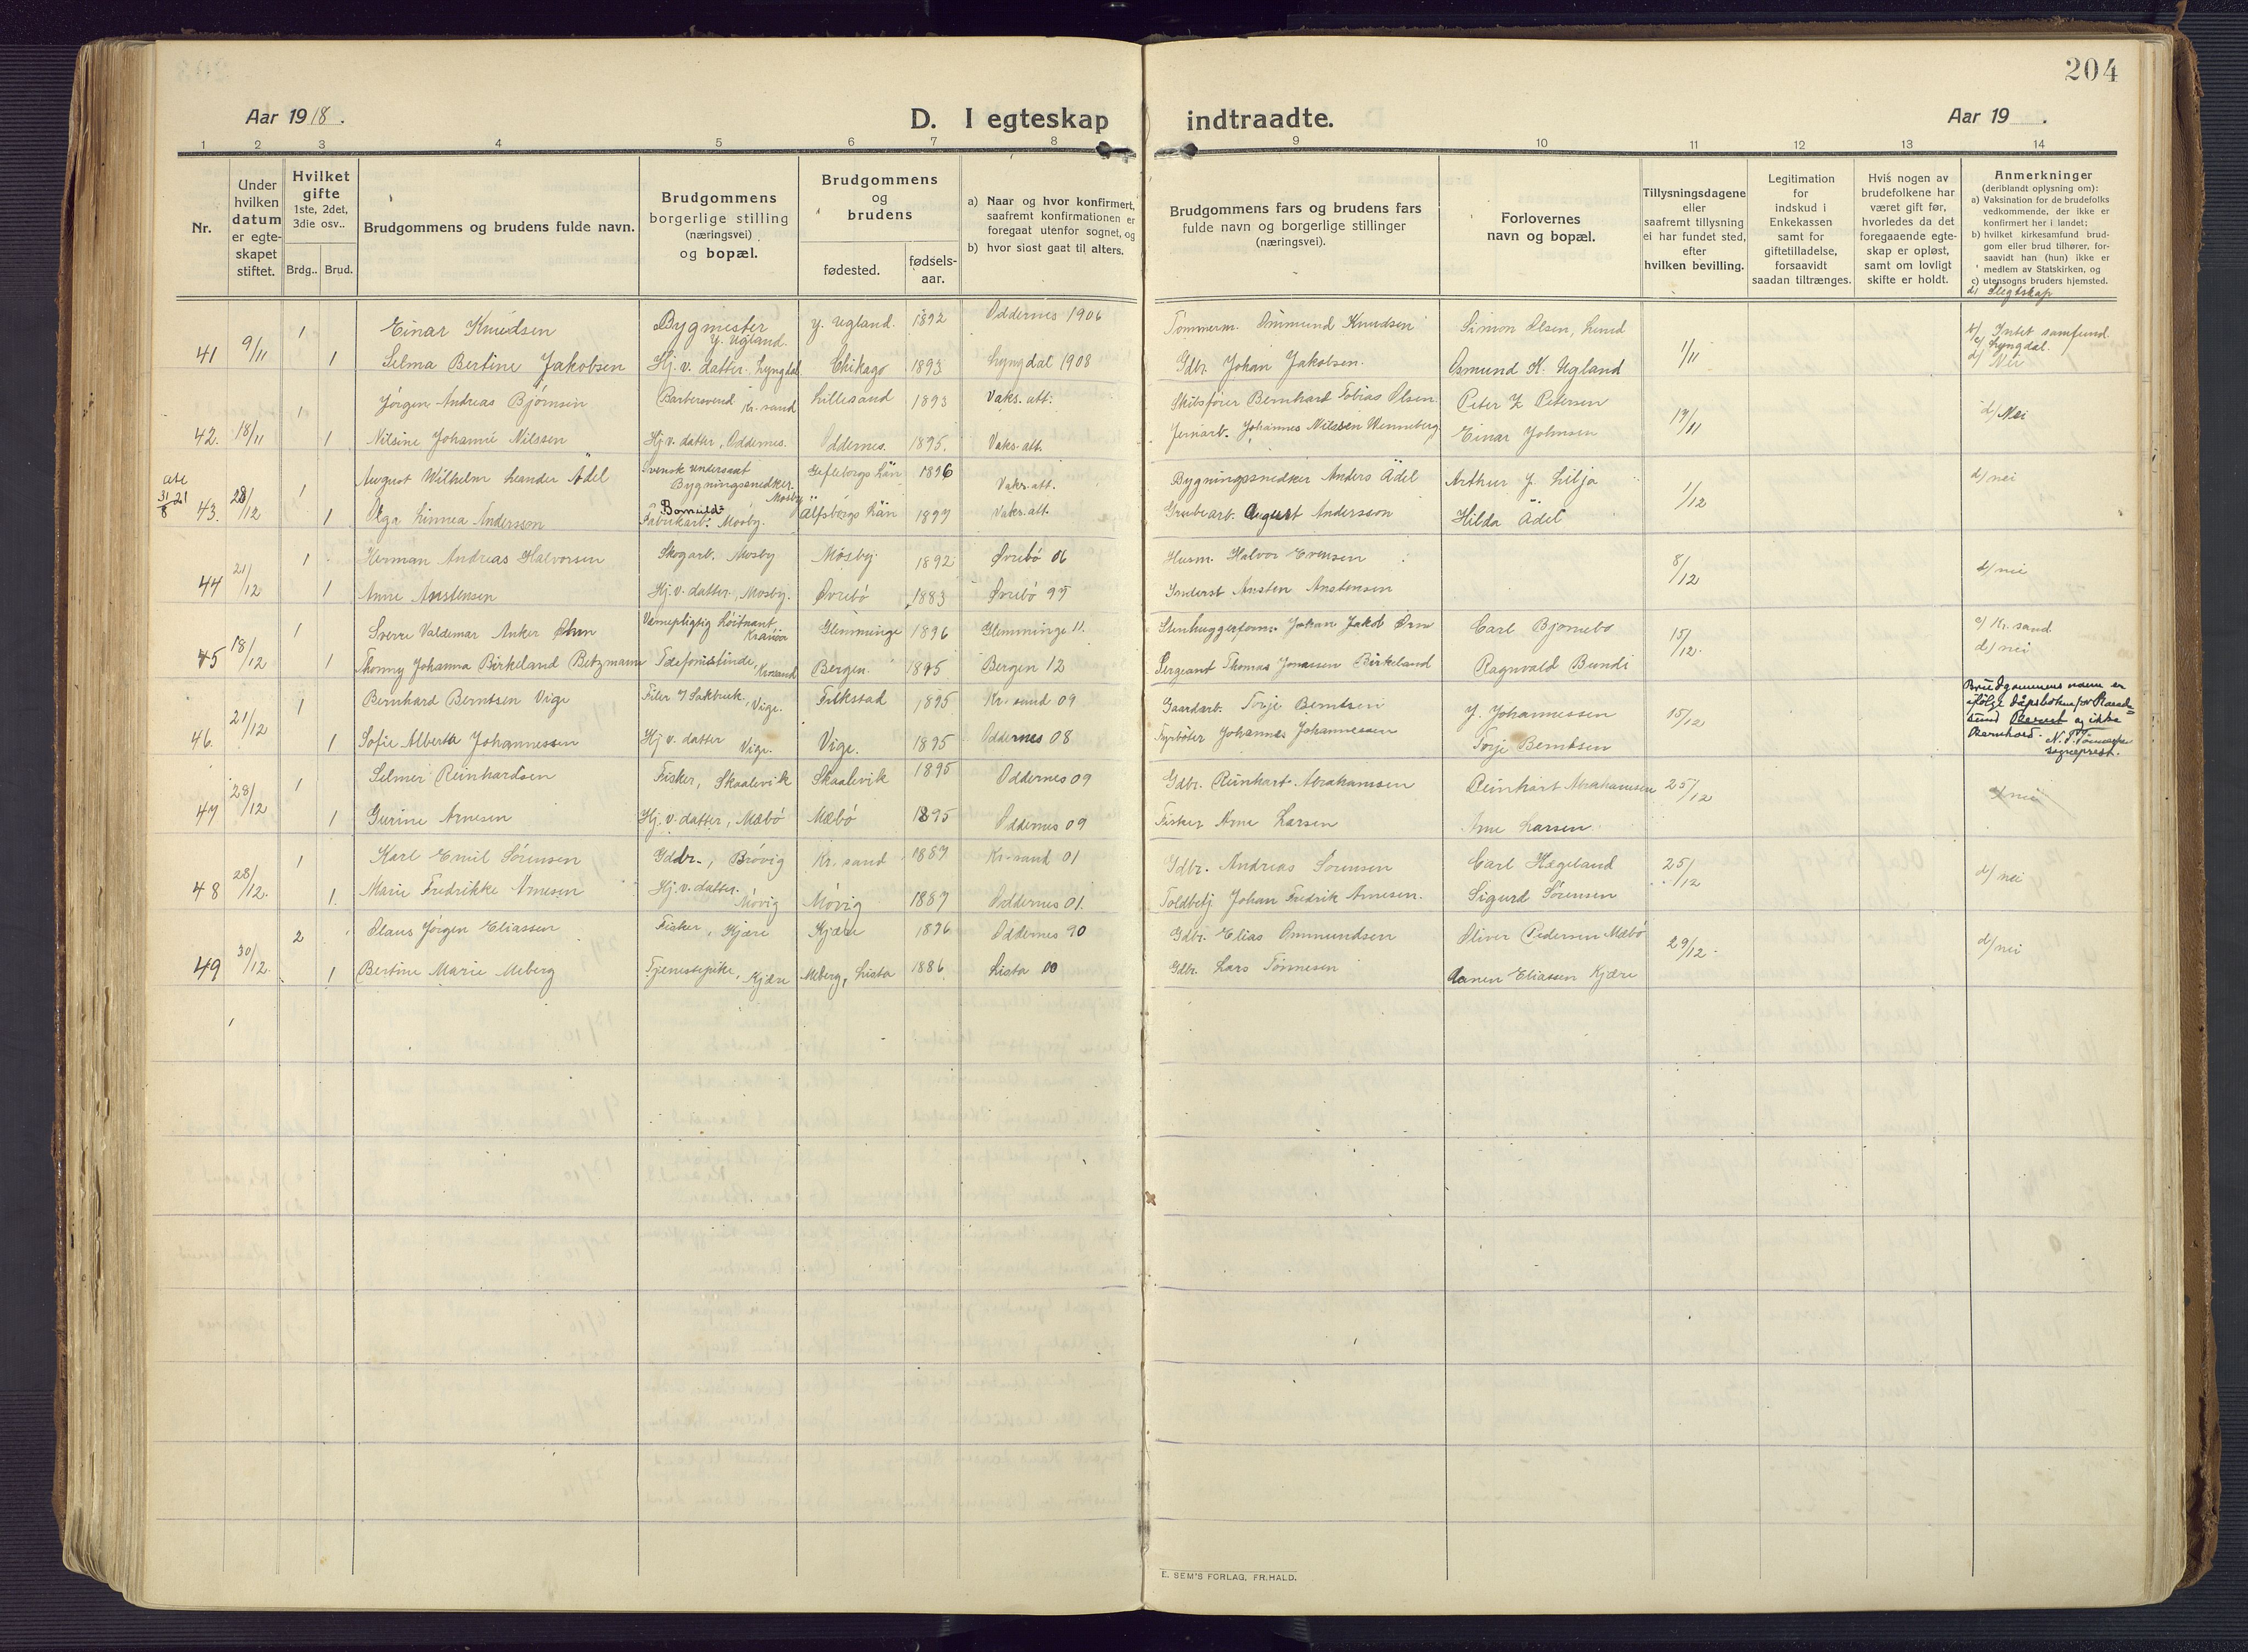 204
Aar 1918.
D. I egteskap indtraadte.
Aar 19 .
1 2 3 4 5 6 7 8 9 10 11 12 13 14
Nr.
Under hvilken datum er egte- skapet stiftet.
Hvilket gifte 1ste, 2det, 3die osv..
Brdg.. Brud.
Brudgommens og brudens fulde navn.
Brudgommens borgerlige stilling (næringsvei) og bopæl.
Brudgommens og brudens
fødested.
fødsels- aar.
a) Naar og hvor konfirmert, saafremt konfirmationen er foregaat utenfor sognet, og
b) hvor sidst gaat til alters.
Brudgommens fars og brudens fars fulde navn og borgerlige stillinger (næringsvei).
Forlovernes navn og bopæl.
Tillysningsdagene eller saafremt tillysning ei har fundet sted, efter hvilken bevilling.
Legitimation for indskud i Enkekassen samt for giftetilladelse, forsaavidt saadan tiltrænges.
Hvis nogen av brudefolkene har været gift før, hvorledes da det foregaaende egte- skap er opløst, samt om lovligt skifte er holdt.
Anmerkninger (deriblandt oplysning om):
a) Vaksination for de brudefolks vedkommende, der ikke er konfirmert her i landet;
b) hvilket kirkesamfund brud- gom eller brud tilhører, for- saavidt han (hun) ikke er medlem av Statskirken, og
c) utensogns bruders hjemsted.
d) Slegtskap
41 9/11 1 Einar Knudsen Bygmester y. Ugland. y. Ugland. 1892 Oddernes 1906 Tømmerm. Ommund Knudsen Simon Olsen, Lund 1/11 b/ Intet samfund. c/ Lyngdal. d/ Nei
1 Selma Bertine Jakobsen Hj. v. datter. Lyngdal Chikago 1893 Lyngdal 1908 Gdbr. Johan Jakobsen. Osmund K. Ugland
42. 18/11 1 Jörgen Andreas Bjørnsen Barbersvend Kr. sand Lillesand 1893 Vaks. att: Skibsfører Bernhart Tobias Olsen Peter Petersen 17/11 d/ Nei
1 Nilsine Johanne Nilssen Hj. v. datter, Oddernes. Oddernes. 1895. Vaks. att. Jernarb. Johannes Nilssen Wenneberg Einar Johnsen
43. 28/12 1 August Wilhelm Leander Ädel Svensk undersaat Bygningssnedker Mosby Gefleborgs län 1896 Vaks. att. Bygningssnedker Anders Ädel Arthur J. Lilja 1/12 d/ nei
att 31/8 21
1 Olga Linnea Andersson Bomuld- Fabrikarb. Mosby. Älfsborgs Län 1897 Vaks. att. Grubearb. August Andersson Hilda Ädel
44 21/12 1 Herman Andreas Halvorsen Skogarb. Mosby Mosby. 1892 Øvrebö 06 Husm. Halvor Evensen 8/12 d/ nei
1 Anne Anstensen Hj. v. datter, Mosby. Øvrebö 1883 Øvrebö 97 Inderst Ansten Anstensen
45 18/12 1 Sverre Valdemar Anker Ørn Vernepligtig Löitnant Glemminge 1896 Glemminge 11. Stenhuggerform. Johan Jakob Ørn Carl Bjørnebo 15/12. c/ Kr. sand d/ nei
1 Thonny Johanna Birkeland Betzmann Telefonistinde, Krsand Bergen. 1895 Bergen 12 Sergeant Thomas Jonassen Birkeland Ragnvald Bundi
46. 21/12 1 Bernhard Berntsen Vige Filer Vige. Filkstad 1895 Kr. sund 09 Gaardarb. Torje Berntsen J. Johannessen 15/12 Brudgommens navn er ifølge dåpsboken for Rand- sund Bernt og ikke Bernhard. N. P. sogneprest.
1 Sofie Alberta Johannessen Hj v. datter Vige. Vige. 1895 Oddernes 08 Fyrböter Johannes Johannessen Torje Berntsen
47 28/12 1 Selmer Reinhardsen Fisker, Skaalevik Skaalevik 1895 Oddernes 09 Gdbr. Reinhart Abrahamsen Reinhart Abrahamsen 25/12 d/ nei
1 Gurine Arnesen Hj. v. datter, Mæbö Mæbö 1895 Oddernes 09 Fisker Arne Larsen Arne Larsen
48 28/12. 1 Karl Emil Sørensen Gdbr., Brøvig Kr. sand 1887 Kr. sand 01 Gdbr. Andreas Sørensen Carl Hægeland 25/12 d/ nei
1. Marie Fredrikke Arnesen Hj. v. datter. Móvig Móvig 1887 Oddernes 01. Toldbetj Johan Fredrik Arnesen. Sigurd Sørensen
49 30/12. 2 Olaus Jørgen Eliassen Fisker, Kjære Kjære 1876 Oddernes 90 Gdbr. Elias Ommundsen Oliver Pedersen Mæbö 29/12. d/ nei
1 Bertine Marie Meberg Tjenestepike, Kjære Meberg, Lista 1886 Lista 00 Gdbr. Lars Tönnesen Aanen Eliassen Kjære
E. SEM'S FORLAG, FR.HALD.